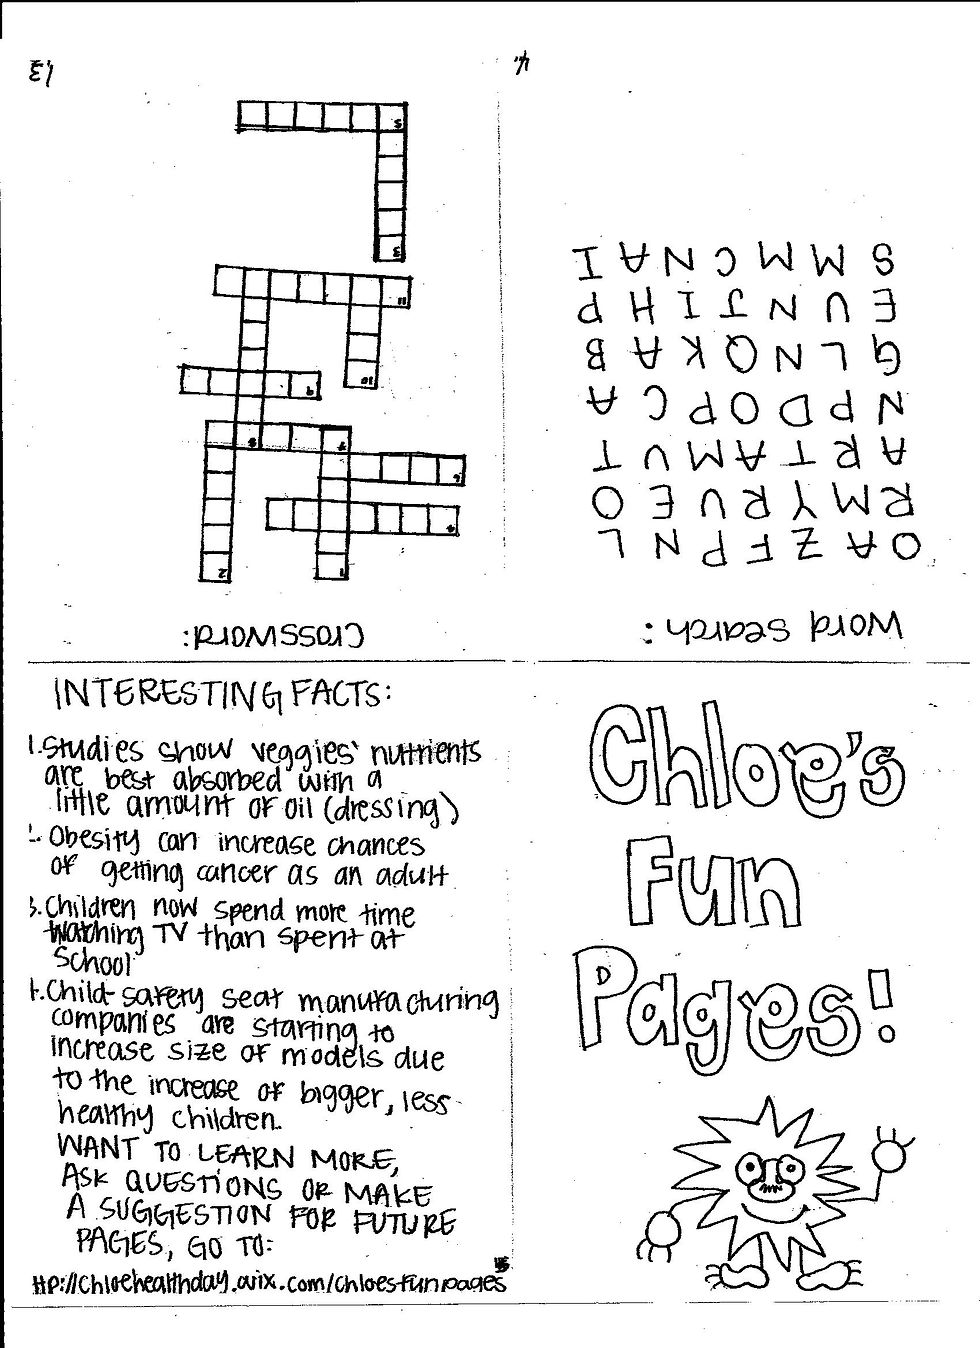 Word search:
O A Z F P N L
R M Y R U E O
A R T A M U T
N P D O P C A
G L N Q K A B
E U N J I H P
S M M C N A I
4.
Crossword:
1
2
4
6
7
8
9
10
11
3
5
INTERESTING FACTS:
1. Studies show veggies' nutrients
are best absorbed with a
little amount of oil (dressing)
2. Obesity can increase chances
of getting cancer as an adult
3. Children now spend more time
watching TV than spent at
school
4. Child-safety seat manufacturing
companies are starting to
increase size of models due
to the increase of bigger, less
healthy children.
WANT TO LEARN MORE,
ASK QUESTIONS OR MAKE
A SUGGESTION FOR FUTURE
PAGES, GO TO:
ttp://chloehealthday.wix.com/chloesfunpages
Chloe's
Fun
Pages!